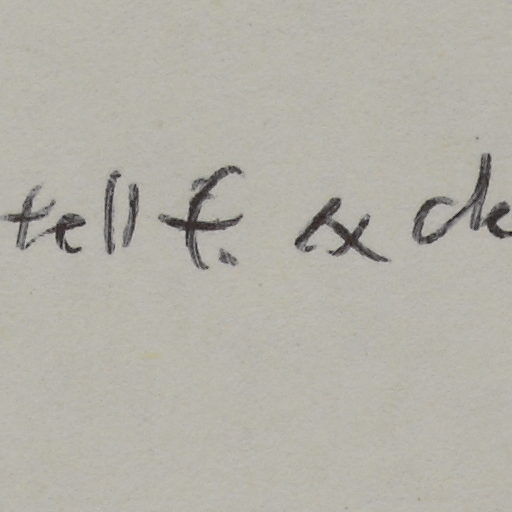 tell f. & de